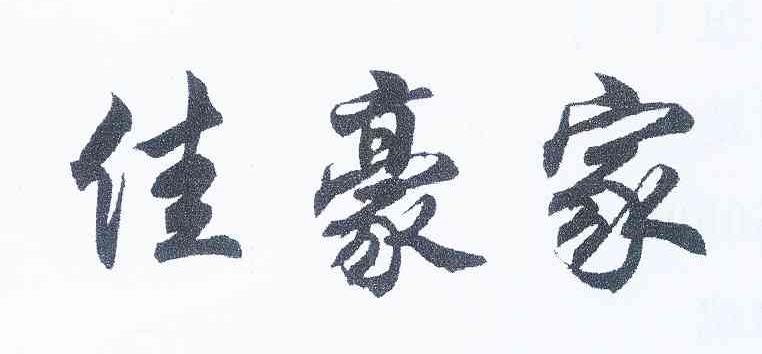 佳豪家